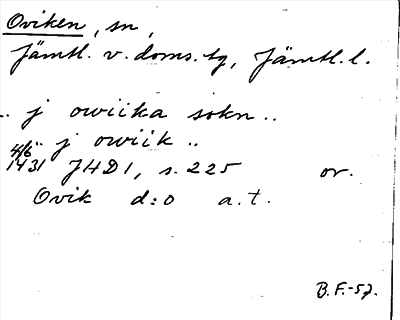 Oviken, sn,
Jämtl. v. doms. tg, Jämtl. l.
.. j owiika sokn ..
.. j owiik ..
4/6
1431 JHD1, s. 225 or.
Ovik d:o a.t.
B.F.-57.